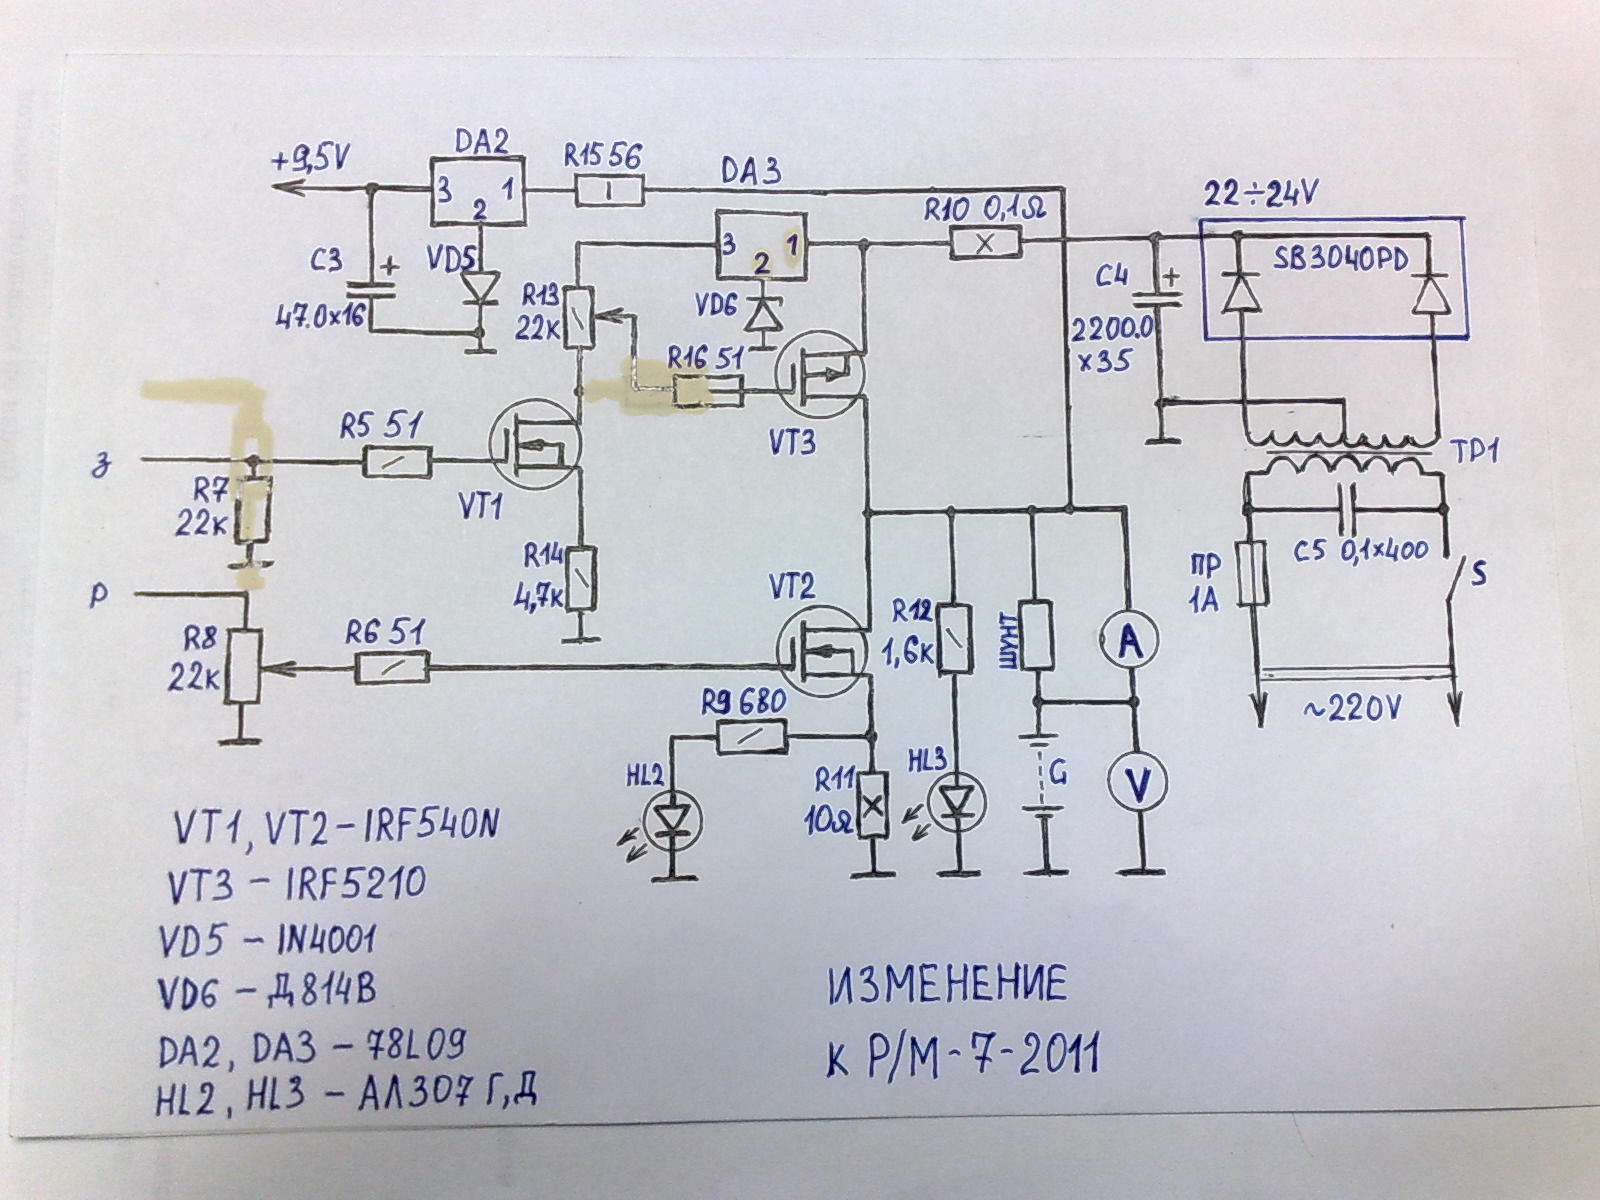 +9,5V
DA2
3 1
2
R15 56
DA3
3 1
2
R10 0,1Ω
22÷24V
SB3040PD
C3
+
47.0x16
VD5
R13
22к
VD6
R16 51
VT3
C4
+
2200.0
x35
ТР1
З
R7
22к
R5 51
VT1
R14
4,7к
Р
R8
22к
R6 51
VT2
R9 680
HL2
R11
10Ω
R12
1,6к
HL3
ШУНТ
A
G
V
ПР
1А
C5 0,1x400
S
~220V
VT1, VT2 – IRF540N
VT3 – IRF5210
VD5 – IN4001
VD6 – Д814В
DA2, DA3 – 78L09
HL2, HL3 – АЛ307 Г,Д
ИЗМЕНЕНИЕ
К Р/М-7-2011